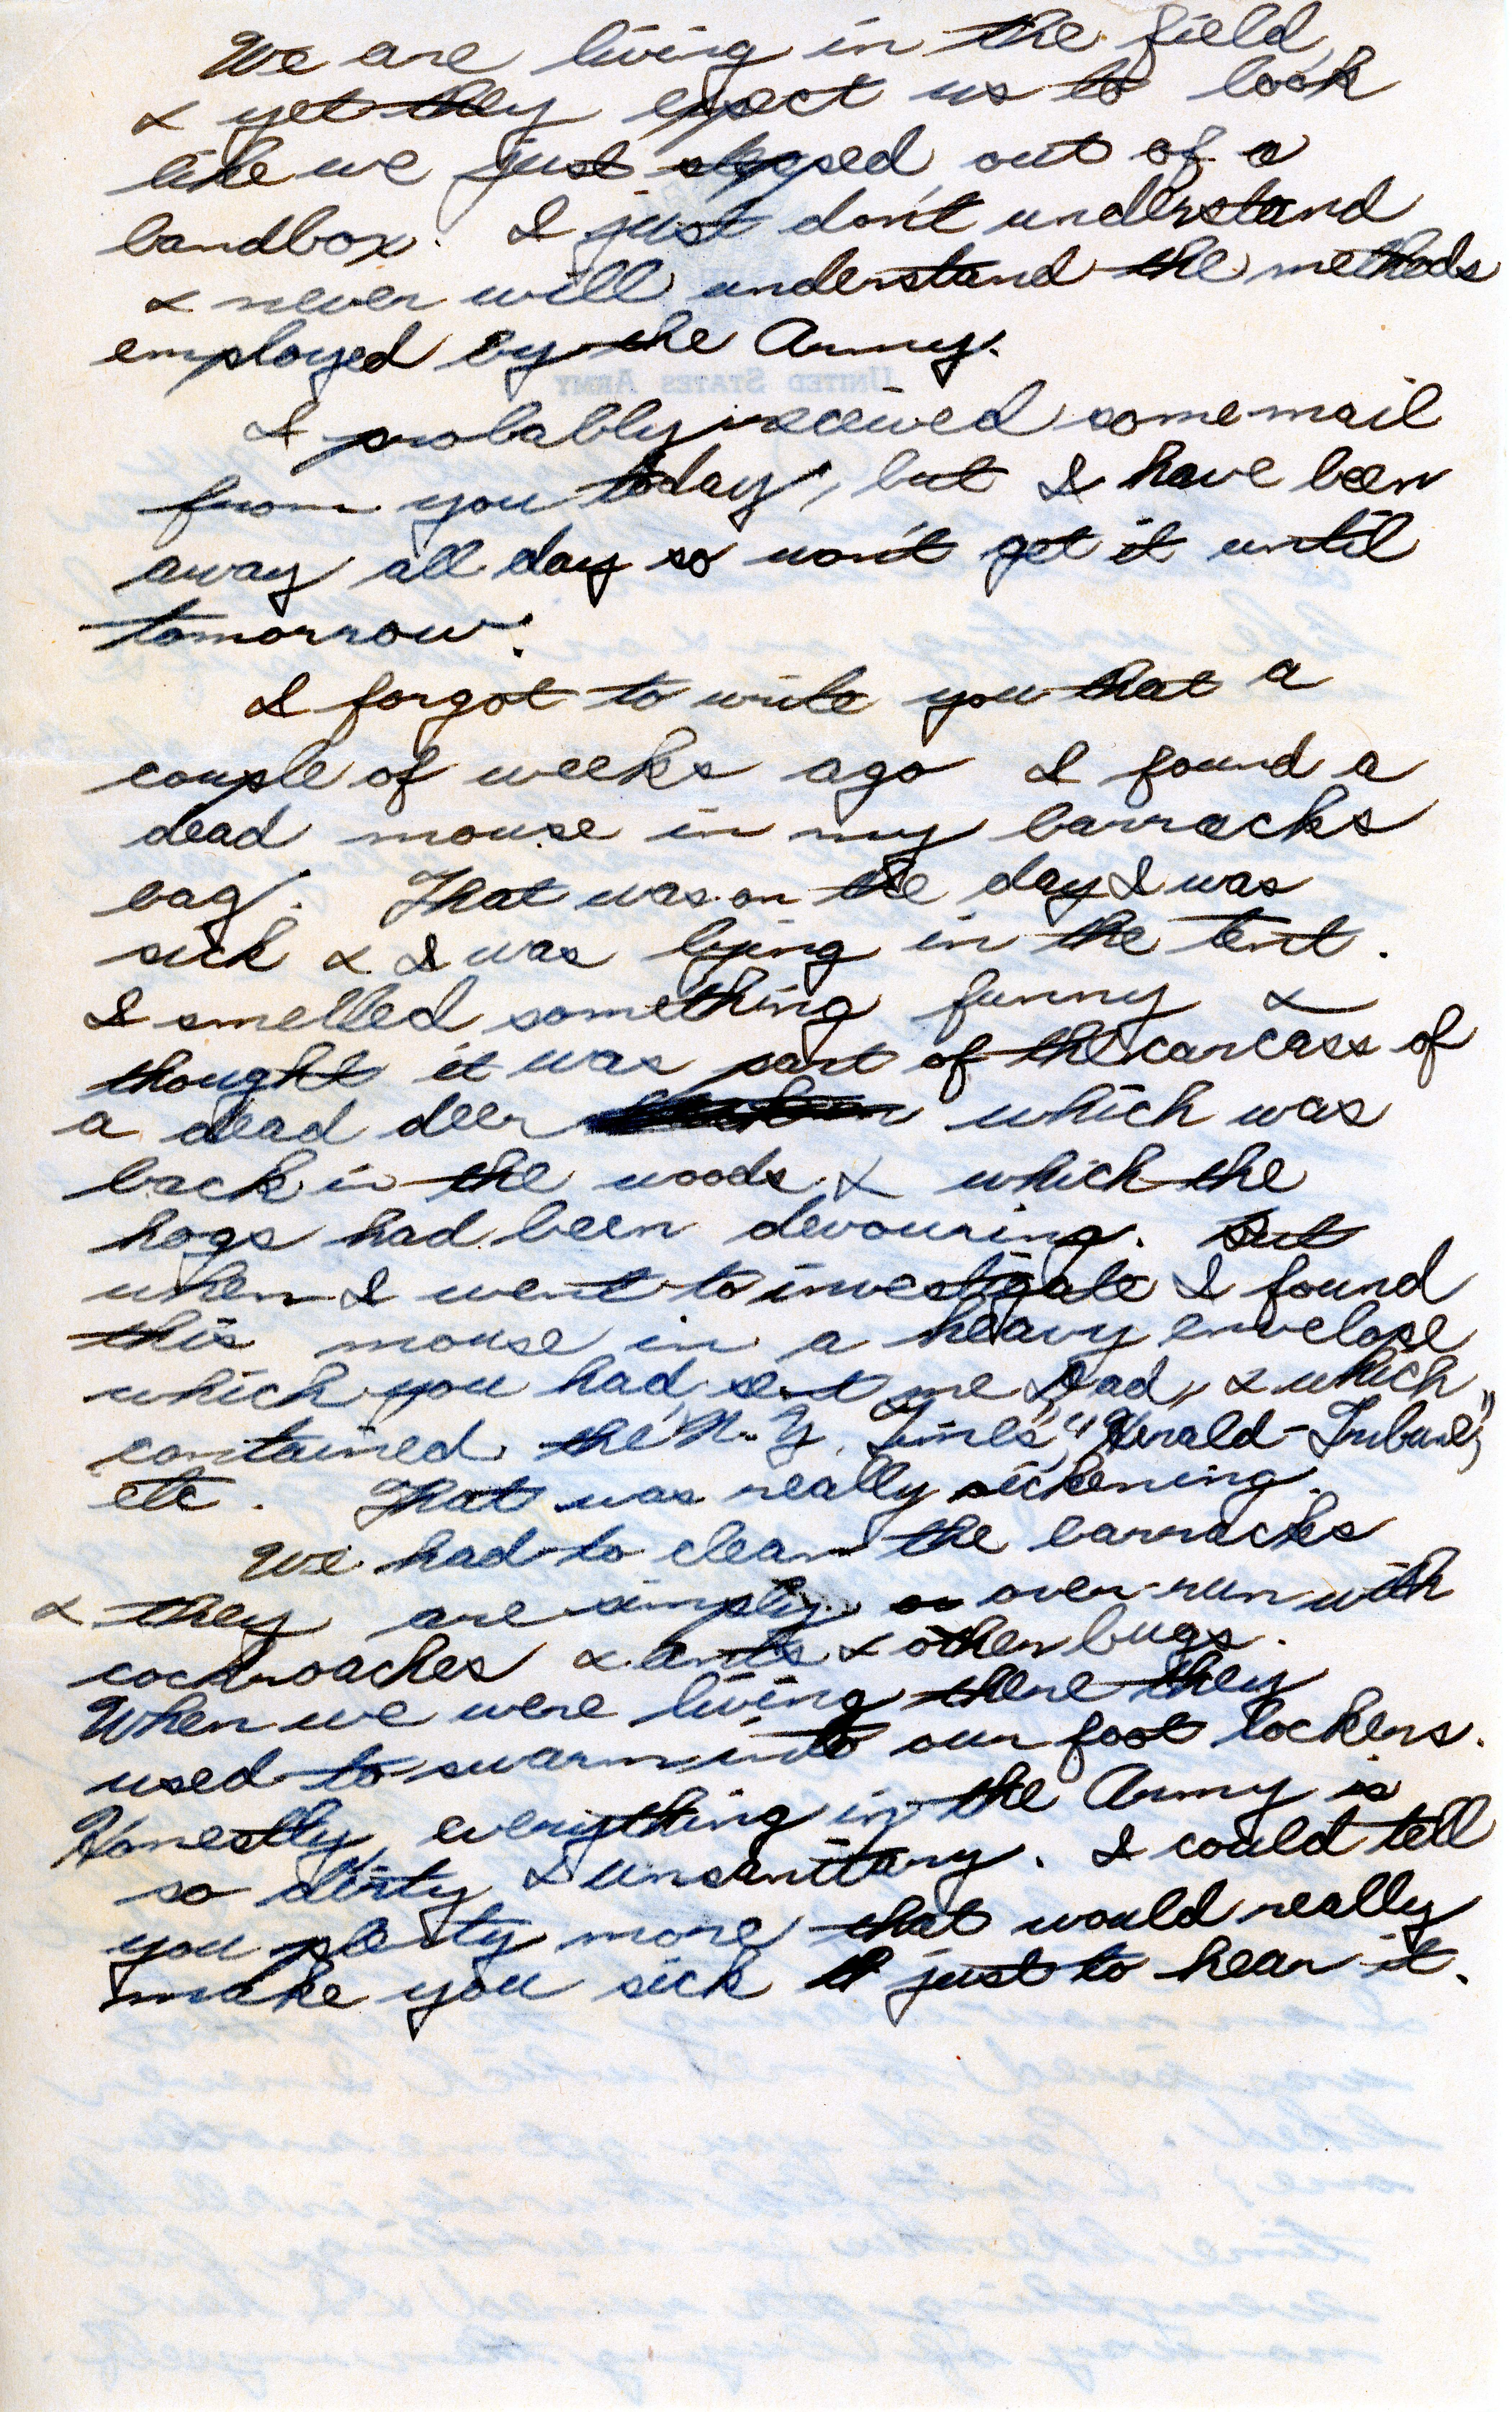 We are living in the field,
& yet they expect us to look
like we just stepped out of a
bandbox. I just don't understand
& never will understand the methods
employed by the Army.
UNITED STATES ARMY
I probably received some mail
from you today, but I have been
away all day so won't get it until
tomorrow.
I forgot to write you that a
couple of weeks ago I found a
dead mouse in my barracks
bag. That was on the day I was
sick & I was lying in the tent.
I smelled something funny &
thought it was part of the carcass of
a dead deer which was
back in the woods & which the
hogs had been devouring. But
when I went to investigate I found
this mouse in a heavy envelope
which you had sent me Dad, & which
contained the N.Y. Times, "Herald-Tribune,"
etc. That was really sickening.
We had to clean the barracks
& they are simply over-run with
cockroaches & ants & other bugs.
When we were living there they
used to swarm into our foot lockers.
Honestly, everything in the Army is
so dirty & unsanitary. I could tell
you plenty more that would really
make you sick just to hear it.